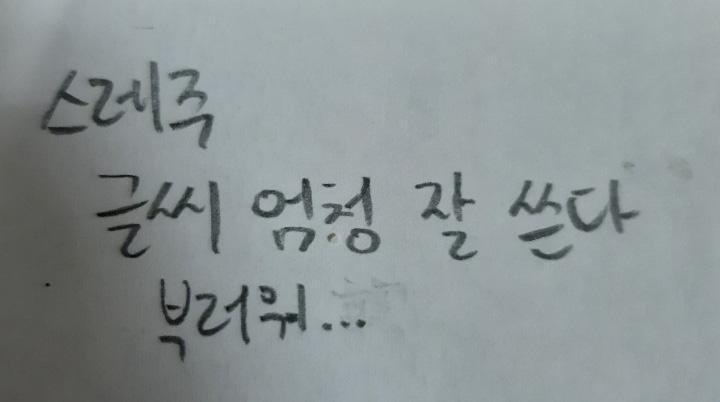 스레주
글씨 엄청 잘 쓴다
부러워...